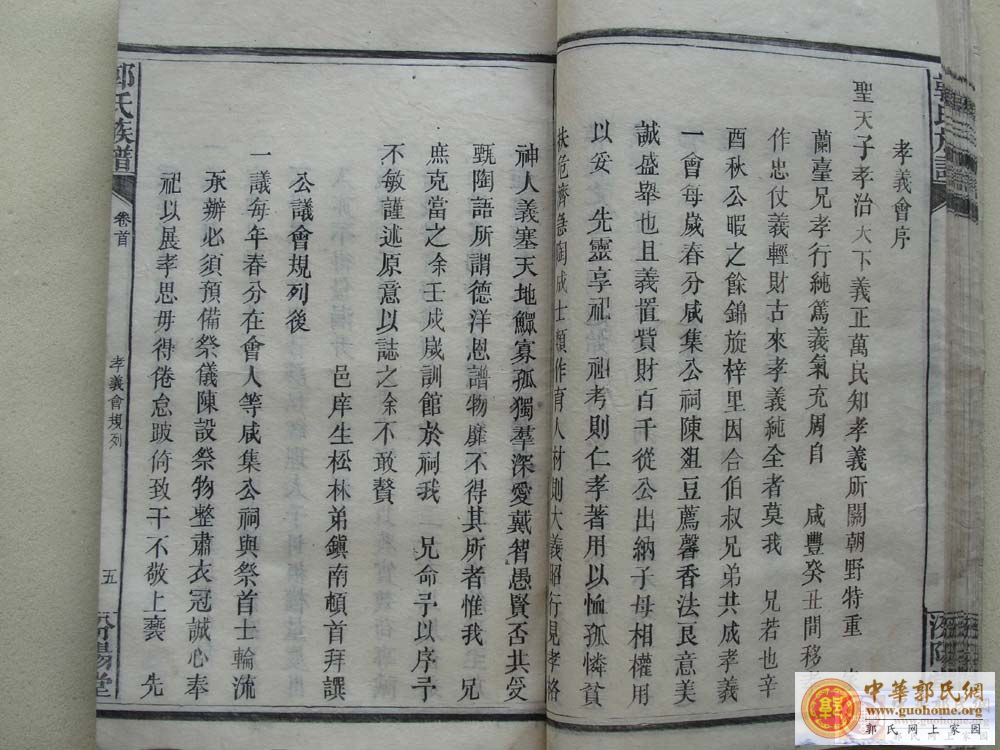 孝義會序
聖天子孝治天下義正萬民知孝義所關朝野特重
蘭臺兄孝行純篤義氣充周自 咸豐癸丑間移
作忠仗義輕財古來孝義純全者莫我 兄若也辛
酉秋公暇之餘錦旋梓里因合伯叔兄弟共成孝義
一會每歲春分咸集公祠陳俎豆薦馨香法良意美
誠盛舉也且義置貲財百千從公出納子母相權用
以妥 先靈享祀 祖考則仁孝著用以恤孤憐貧
扶危濟急陶成士類作育人材則大義昭行見孝格
神人義塞天地鰥寡孤獨羣深愛戴智愚賢否共受
甄陶語所謂德洋恩譜物靡不得其所者惟我 兄
庶克當之余壬戌歲訓館於祠我 兄命予以序予
不敏謹述原意以誌之余不敢贅
邑庠生松林弟鎮南頓首拜譔
公議會規列後
一議每年春分在會人等咸集公祠與祭首士輪流
承辦必須預備祭儀陳設祭物整肅衣冠誠心奉
祀以展孝思毋得倦怠跛倚致干不敬上褻 先
郭氏族譜 卷首 孝義會規列 五 汾陽堂
中華郭氏網
www.guohome.org
郭氏网上家园